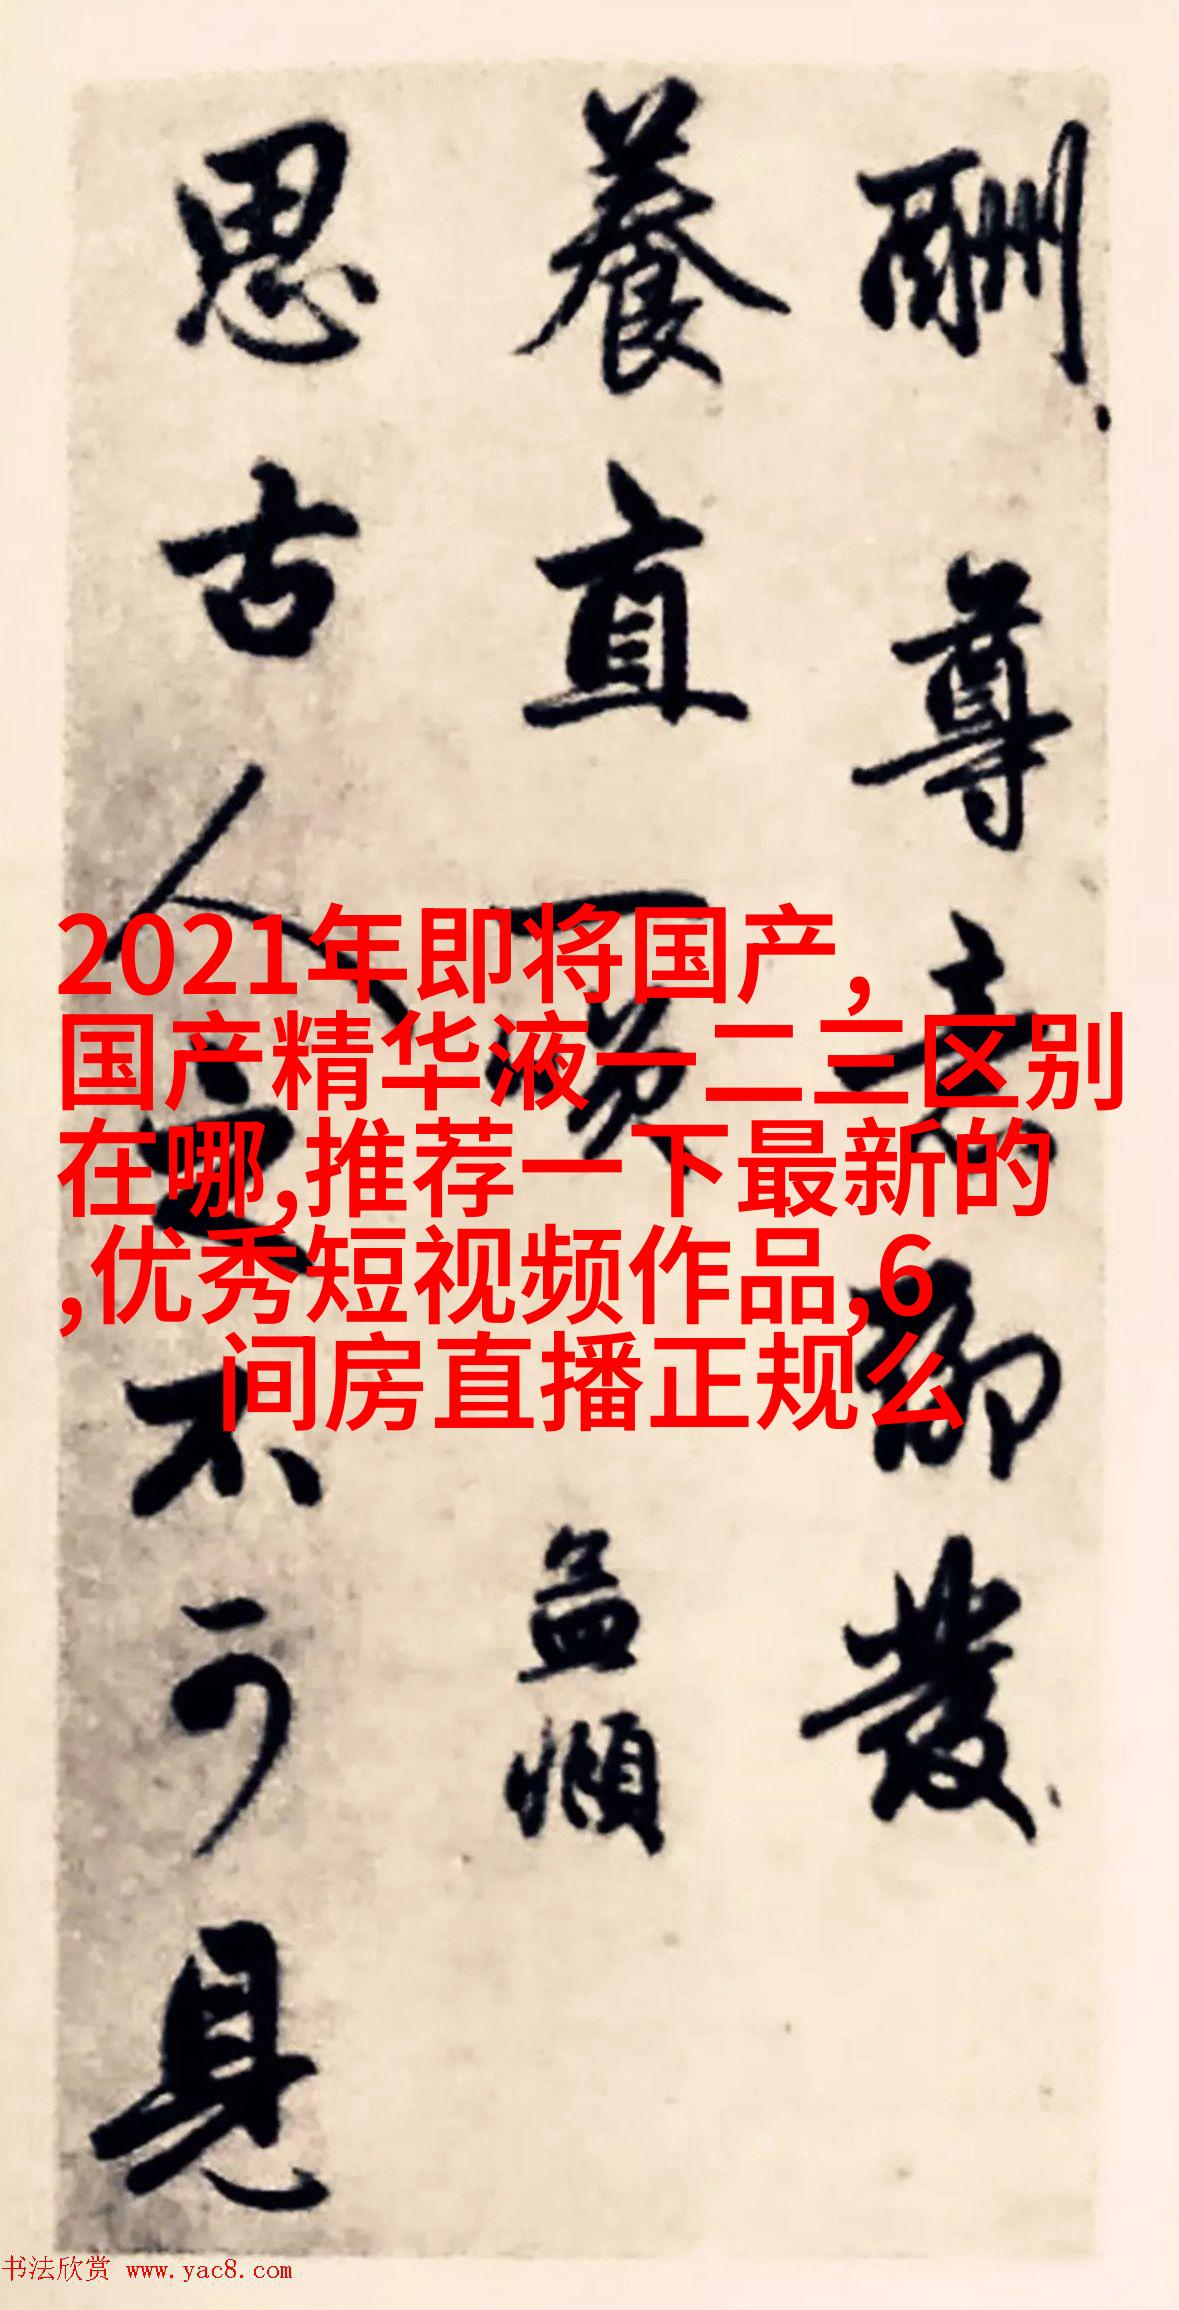 酬尊意聊發
養直一孟頫
思古人不可見
2021年即将国产,
国产精华液一二三区别
在哪,推荐一下最新的
,优秀短视频作品,6
间房直播正规么
书法欣赏 www.yac8.com